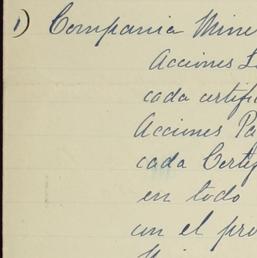 1) Compania Mine
Acciones L
cada certifi
Acciones Pa
cada Certif
en todo
con el pro